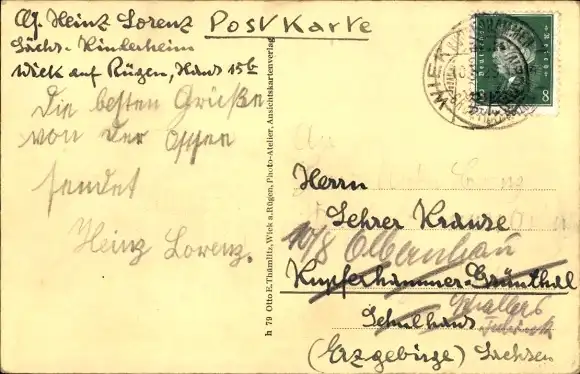 Abs. Heinz Lorenz
Sächs. Kinderheim
Wiek auf Rügen, Haus 15b
Postkarte
Die besten Grüße
von der Ostsee
sendet
Heinz Lorenz.
h 79 Otto E. Thämlitz, Wiek a. Rügen, Photo-Atelier, Ansichtskartenverlag
WIEK
8
8
Herrn
Lehrer Krause
10/8 Olbernhau
Kupferhammer-Grünthal
Schulhaus
(Erzgebirge) Sachsen